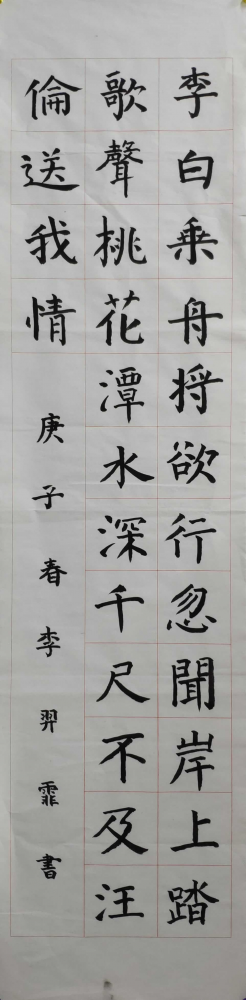 李白乘舟将欲行忽聞岸上踏
歌聲桃花潭水深千尺不及汪
倫送我情
庚子春李羿霏書